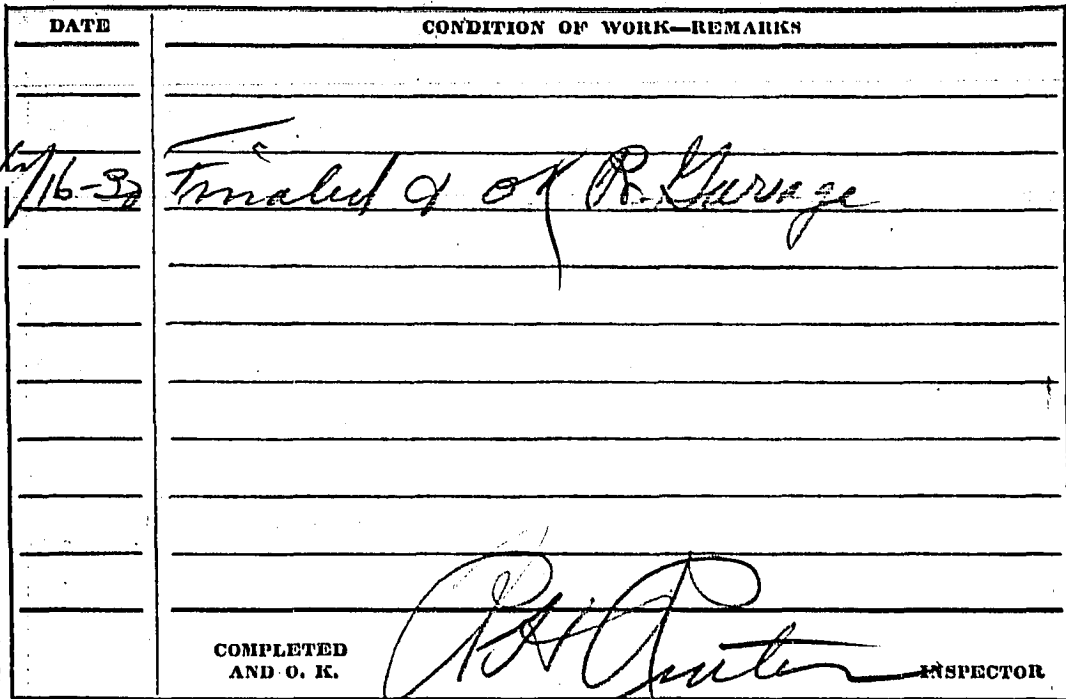 DATE CONDITION OF WORK—REMARKS
16-30 Finaled & OK R. Garage
COMPLETED
AND O. K.
INSPECTOR